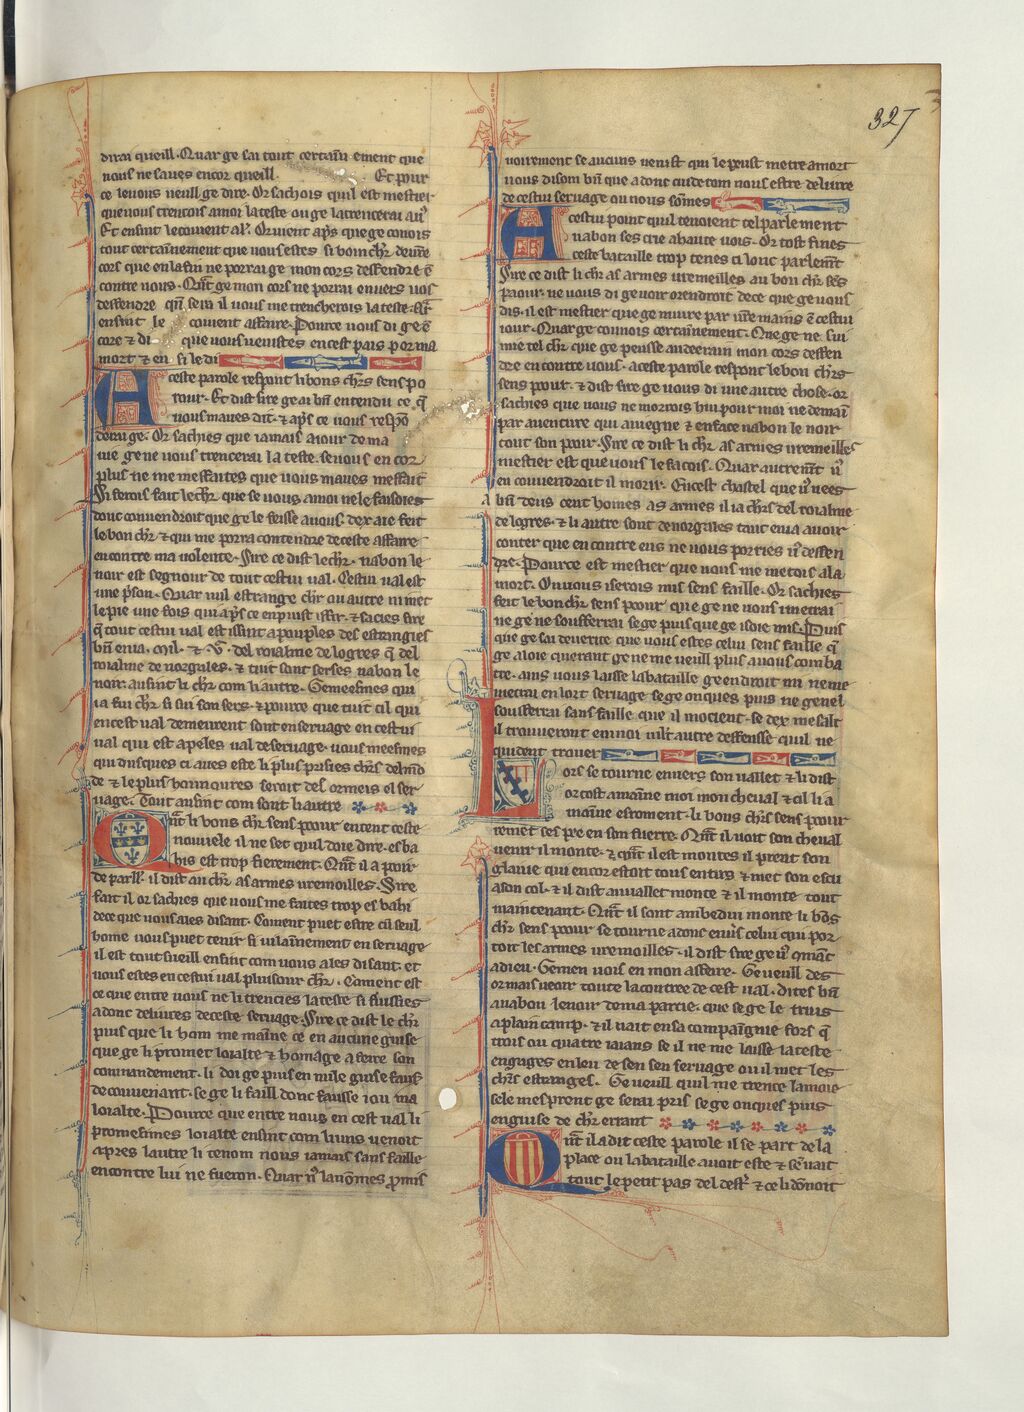 327
dirai queill. Quar ge sai tout certain ement que
nous ne saves encor queill. Et pour
ce levous veull ge dire. Or sachois quil est mestier
que vous trencois amoi lateste ou ge latrencerai au
Et ensint le couent al. Or vient aps que ge conois
tout certainement que vous estes si bom chr. de vre
cors que en lafin ne porrai ge mon cors deffendre
contre vous. Qnt ge mon cors ne porrai envers vos
deffendre sera il vous me trencherois lateste.
ensint le couient affaire. Pource vous di ge
core & di que vous venistes en cest pais por ma
mort & en si le di
Aceste parole respont li bons chrs sens po
rour. Et dist sire ge ai bn entendu ce q
vous maves dit. & aps ce vous respo
derai ge. Or sachies que iamais aiour de ma
vie ge ne vous trencerai la teste. se vous en cor
plus ne me meffaites que vous maves meffait
Si ferois fait le chr que se vous amoi ne le faisoies
donc conuendroit que ge le feisse avous. dex aie feit
le bon chr. & qui me porra contendre de ceste affaire
encontre ma volente. Sire ce dist le chr. nabon le
noir est segnour de tout cestui val. Cestui val est
une pson. Quar nul estrange chr ou autre ni met
le pie une fois qui aps ce en puist issir. & sacies sire
q tout cestui val est issint apouples des estrangies
bn en ia . mil . & . v . del roialme de logres q del
roialme de norgales. & tuit sont serses nabon le
noir. ausint li chr com li autre. Ge meesmes qui
ia fui chr si sui son sers. & pource que tuit cil qui
en cest val demeurent sont en servage en cestui
val qui est apeles val de servage. vous meesmes
qui iusques ci aves este li plus prisies chrs del mo
de & le plus honnoures serois del ormeis el ser
vage. Tout ausint com sont li autre
Qnt li bons chr sens poour entent ceste
nouvele il ne set quil doie dire. esba
his est trop fierement. Qnt il a poir
de parlr. il dist au chr as armes vremoilles. Sire
fait il or saches que vous me faites trop es bahi
de ce que vous ales disant. Coment puet estre cu seul
home vous puet tenir si vilainnement en servage
il est tout sueill ensint com vous ales disant. et
vous estes en cestui val plusour chr. Coment est
ce que entre vous ne li trencies la teste si fuissies
adonc deliures de ceste servage. Sire ce dist le chr
puis que li hom me maine ce en aucune guise
que ge li promet loialte & homage a feire son
commandement. li doi ge puis en nule guise faus
de couvenant. se ge li faill donc fausse iou ma
loialte. Pource que entre nous en cest val li
promesimes loialte ensint com luns venoit
apres lautre li tenom nous iamais sans faille
encontre lui ne fueron. Quar lavomes pmis
voirement se aucuns venist qui le peust metre amort
vous disom bn que adonc cuiderom nous estre deliure
de cestui servage ou nous somes
Acestui point quil tenoient tel parlement
nabon ses crie ahaute vois. Or tost fines
ceste bataille trop tenes ci lonc parlemt
Sire ce dist li chr as armes vremeilles au bon chr sens
paour. ne vous di ge voir orendroit de ce que ge vous
dis. il est mestier que ge muire par vre mains e cestui
iour. Quar ge connois certainnement. Que ge ne sui
mie tel chr. que ge peusse audeerain mon cors deffen
dre en contre vous. aceste parole respont le bon chrs
sens pour. & dist sire ge vous di une autre chose. or
sachies que vous ne morrois hui pour moi ne demain
par aventure qui aviegne & en face nabon le noir
tout son pour. Sire ce dist li chr as armes vremeilles
mestier est que vous le facois. Quar autremt
en couvendroit il morir. En cest chastel que vees
a bn deus cent homes as armes il i a chrs del roialme
de logres. & li autre sont de norgales tant en ia avoir
conter que en contre eus ne vous porries deffen
dre. Pource est mestier que vous me metois ala
mort. Ou vous i serois mis sens faille. Or sachies
feit le bon chr sens poour que ge ne vous i metrai
ne ge ne soufferrai se ge puis que ge i soie mis. Puis
que ge sai de verite que vous estes celui sens faille q
ge aloie querant ge ne me vueill plus avous comba
tre. ains vous laisse la bataille ge endroit mi ne me
metrai en lort servage se ge onques puis ne ge nel
soufferrai sans faille que il mocient. se dex me salt
il trouveront en moi ml't autre deffensse quil ne
quident trover
Lors se tourne envers son vallet & li dist
or tost amaine moi mon cheval & cil li a
maine esroment. li bons chrs sens poour
remet ses pee en son fuerre. Qnt il voit son cheval
venir il monte. & qnt il est montes il prent son
glaive qui encor estoit tous entirs & met son escu
a son col. & il dist au vallet monte & il monte tout
maintenant. Qnt il sont ambedui monte li bos
chr sens poour se tourne adonc envs celui qui por
toit les armes vremoilles. il dist sire ge comat
a dieu. Ge men vois en mon affeire. Ge vueill des
or mais veoir toute la contree de cest val. Dites bn
a nabon le noir de ma partie. que se ge le truis
a plain camp. & il nait en sa compaingnie fors q
trois ou quatre iaians se il ne me laisse la teste
en gages en leu de sen servage ou il met les
chrs estranges. Ge vueill quil me trence la moie
se le mesprent ge serai pris se ge onques puis
en guise de chr errant
Qnt il a dit ceste parole il se part de la
place ou la bataille avoit este & sen vait
tout le petit pas del destr & ce li donoit